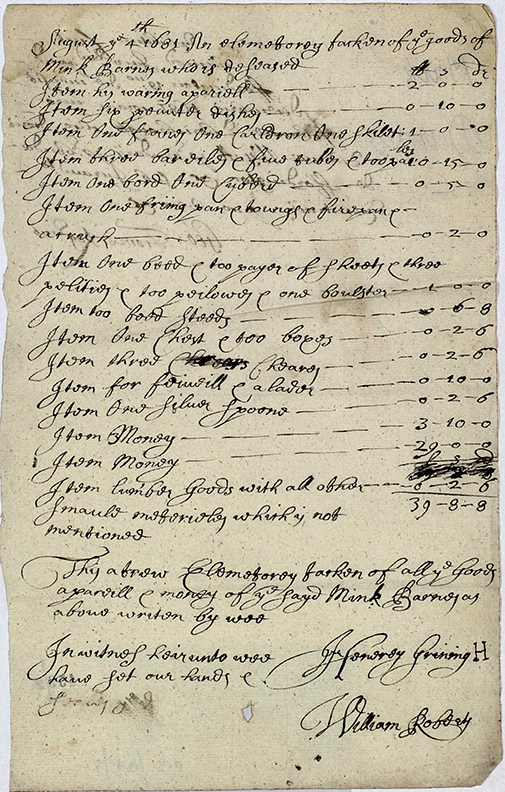 August ye 4th 1681 An elemetorey tacken of ye goods of
Mink Barnes who is deseased lb s d
Item his waring apariell — 2 - 0 - 0
Item six peauter dishes — 0 - 10 - 0
Item One One Caldron One skilet: 1 - 0 - 0
Item three bareiles & five tubes & too pailes 0 - 15 - 0
Item One bord One Cubbard — 0 - 5 - 0
Item One friing pan & toungs & fire pan &
— 0 - 2 - 0
Item One beed & too payer of sheets & three
& too peilowes & one boulster — 1 - 0 - 0
Item too beed steeds — 0 - 6 - 8
Item One Chest & too boxes — 0 - 2 - 6
Item three Cheares — 0 - 2 - 6
Item for feweill & a lader — 0 - 10 - 0
Item One silver spoone — 0 - 2 - 6
Item Money — 3 - 10 - 0
Item Money 29 - 0 - 0
Item lumber Goods with all other — 0 - 2 - 6
smaule meterieles which is not 39 - 8 - 8
mentioned
This a trew Elemetorey tacken of all ye Goods
apareill & money of ye sayd Mink Barnes as
above writen by wee
In witnes heirunto wee Henerey Grining H
have set our hands &
William Roberts